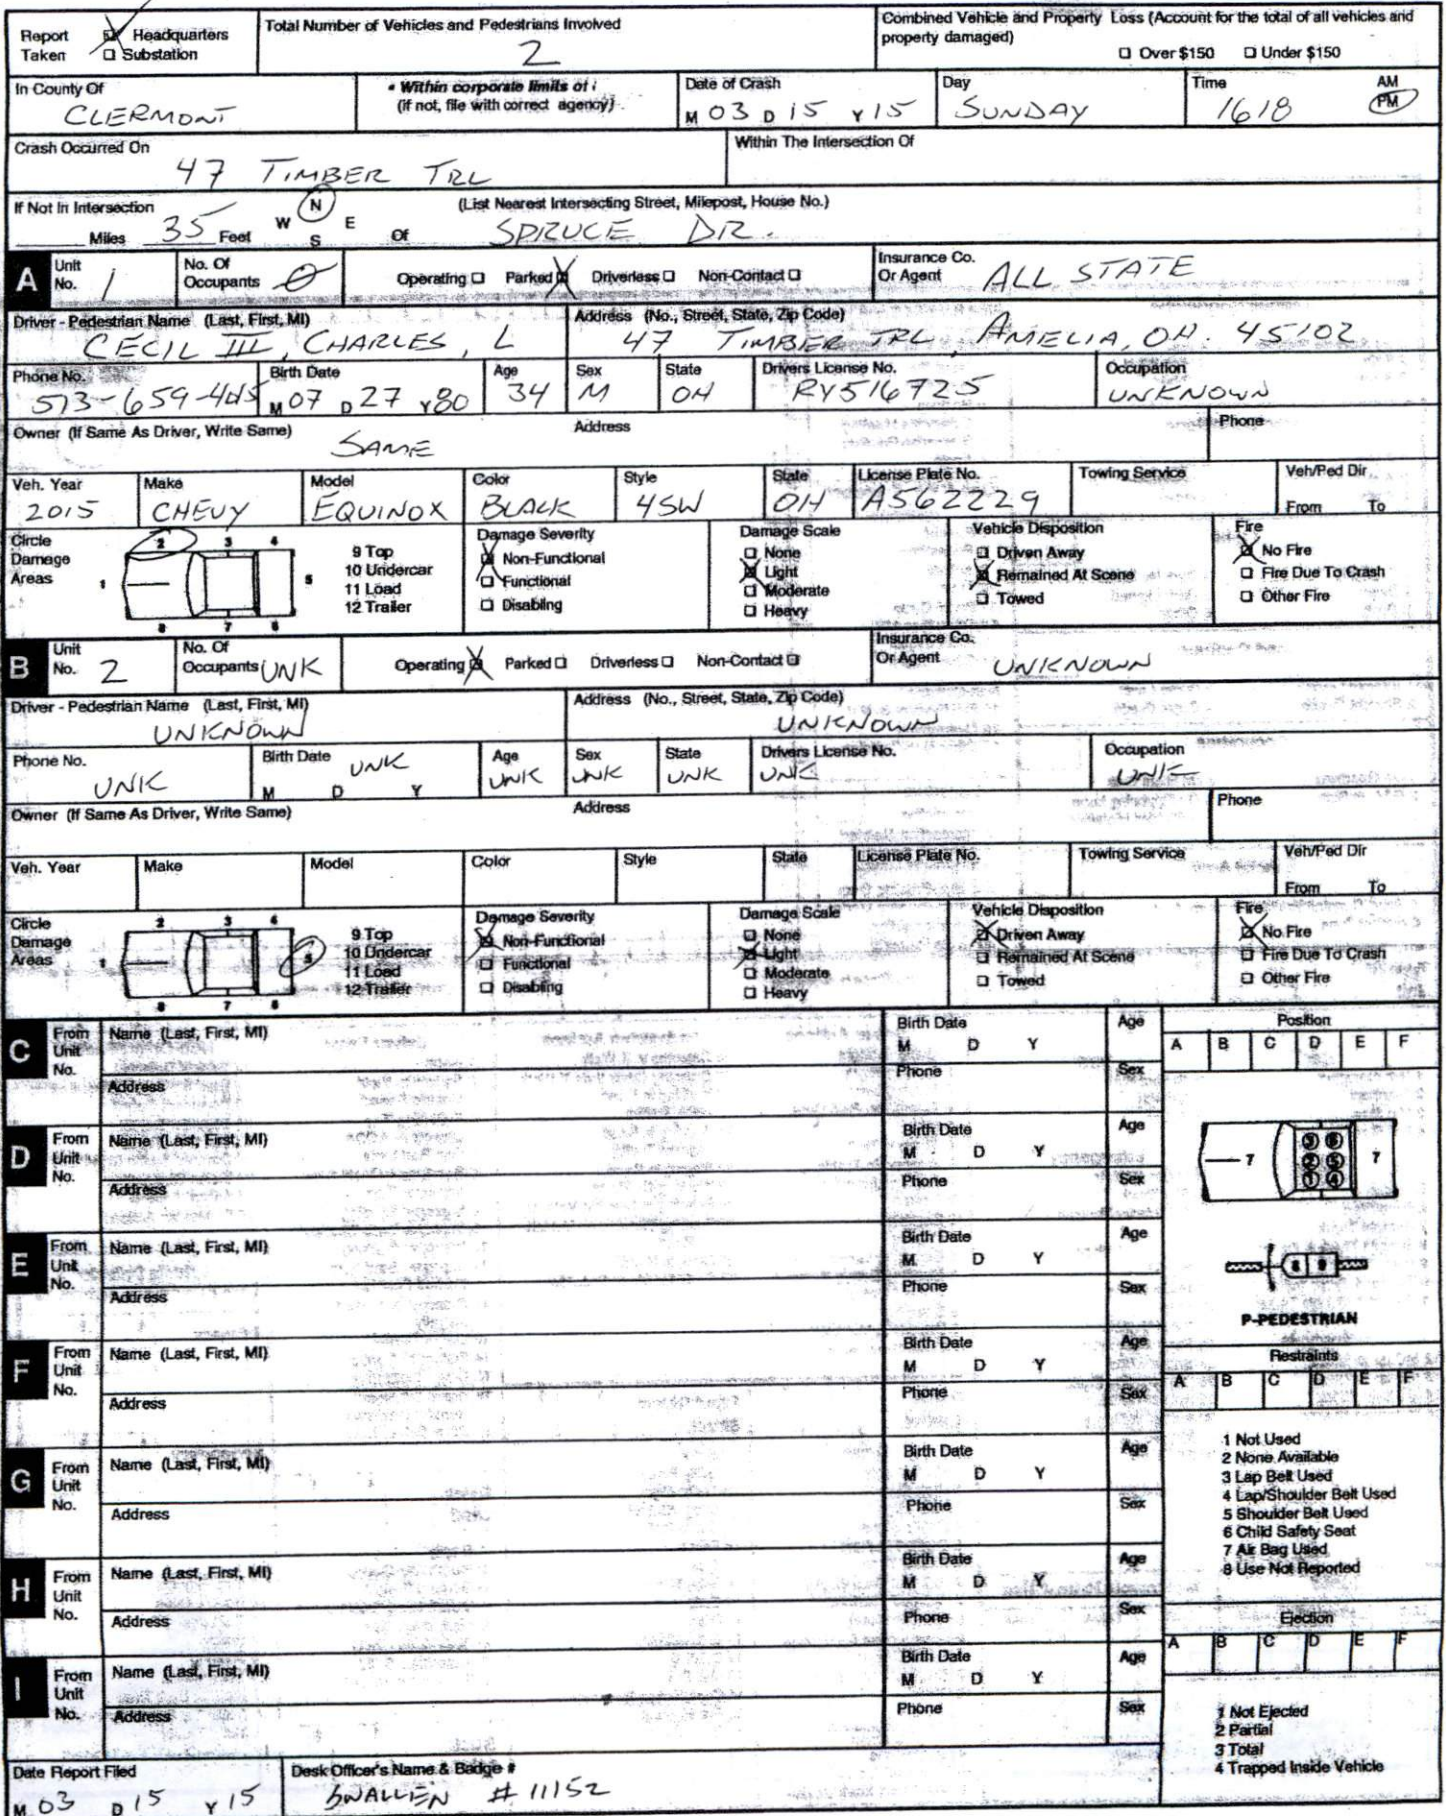 Report Taken ☒ Headquarters ☐ Substation
Total Number of Vehicles and Pedestrians Involved 2
Combined Vehicle and Property Loss (Account for the total of all vehicles and property damaged) ☐ Over $150 ☐ Under $150
In County Of CLERMONT
• Within corporate limits of: (if not, file with correct agency)
Date of Crash M 03 D 15 Y 15
Day SUNDAY
Time 1618 AM PM
Crash Occurred On 47 TIMBER TRL
Within The Intersection Of
If Not In Intersection Miles 35 Feet W N E S Of
(List Nearest Intersecting Street, Milepost, House No.) SPRUCE DR.
A Unit No. 1
No. Of Occupants 0
Operating ☐ Parked ☒ Driverless ☐ Non-Contact ☐
Insurance Co. Or Agent ALL STATE
Driver - Pedestrian Name (Last, First, MI) CECIL III, CHARLES, L
Address (No., Street, State, Zip Code) 47 TIMBER TRL, AMELIA, OH. 45102
Phone No. 513-659-
Birth Date M 07 D 27 Y 80
Age 34
Sex M
State OH
Drivers License No. RY516725
Occupation UNKNOWN
Owner (If Same As Driver, Write Same) SAME
Address
Phone
Veh. Year 2015
Make CHEVY
Model EQUINOX
Color BLACK
Style 4SW
State OH
License Plate No. A562229
Towing Service
Veh/Ped Dir From To
Circle Damage Areas 1 2 3 4 5 6 7 8
9 Top
10 Undercar
11 Load
12 Trailer
Damage Severity ☒ Non-Functional ☐ Functional ☐ Disabling
Damage Scale ☐ None ☒ Light ☐ Moderate ☐ Heavy
Vehicle Disposition ☐ Driven Away ☒ Remained At Scene ☐ Towed
Fire ☒ No Fire ☐ Fire Due To Crash ☐ Other Fire
B Unit No. 2
No. Of Occupants UNK
Operating ☒ Parked ☐ Driverless ☐ Non-Contact ☐
Insurance Co. Or Agent UNKNOWN
Driver - Pedestrian Name (Last, First, MI) UNKNOWN
Address (No., Street, State, Zip Code) UNKNOWN
Phone No. UNK
Birth Date UNK M D Y
Age UNK
Sex UNK
State UNK
Drivers License No. UNK
Occupation UNK
Owner (If Same As Driver, Write Same)
Address
Phone
Veh. Year
Make
Model
Color
Style
State
License Plate No.
Towing Service
Veh/Ped Dir From To
Circle Damage Areas 1 2 3 4 5 6 7 8
9 Top
10 Undercar
11 Load
12 Trailer
Damage Severity ☒ Non-Functional ☐ Functional ☐ Disabling
Damage Scale ☐ None ☒ Light ☐ Moderate ☐ Heavy
Vehicle Disposition ☒ Driven Away ☐ Remained At Scene ☐ Towed
Fire ☒ No Fire ☐ Fire Due To Crash ☐ Other Fire
C From Unit No. Name (Last, First, MI) Birth Date M D Y Age
Address Phone Sex
D From Unit No. Name (Last, First, MI) Birth Date M D Y Age
Address Phone Sex
E From Unit No. Name (Last, First, MI) Birth Date M D Y Age
Address Phone Sex
F From Unit No. Name (Last, First, MI) Birth Date M D Y Age
Address Phone Sex
G From Unit No. Name (Last, First, MI) Birth Date M D Y Age
Address Phone Sex
H From Unit No. Name (Last, First, MI) Birth Date M D Y Age
Address Phone Sex
I From Unit No. Name (Last, First, MI) Birth Date M D Y Age
Address Phone Sex
Position
A B C D E F
7 3 6 2 5 1 4 7
8 9
P-PEDESTRIAN
Restraints
A B C D E F
1 Not Used
2 None Available
3 Lap Belt Used
4 Lap/Shoulder Belt Used
5 Shoulder Belt Used
6 Child Safety Seat
7 Air Bag Used
8 Use Not Reported
Ejection
A B C D E F
1 Not Ejected
2 Partial
3 Total
4 Trapped Inside Vehicle
Date Report Filed M 03 D 15 Y 15
Desk Officer's Name & Badge # # 11152